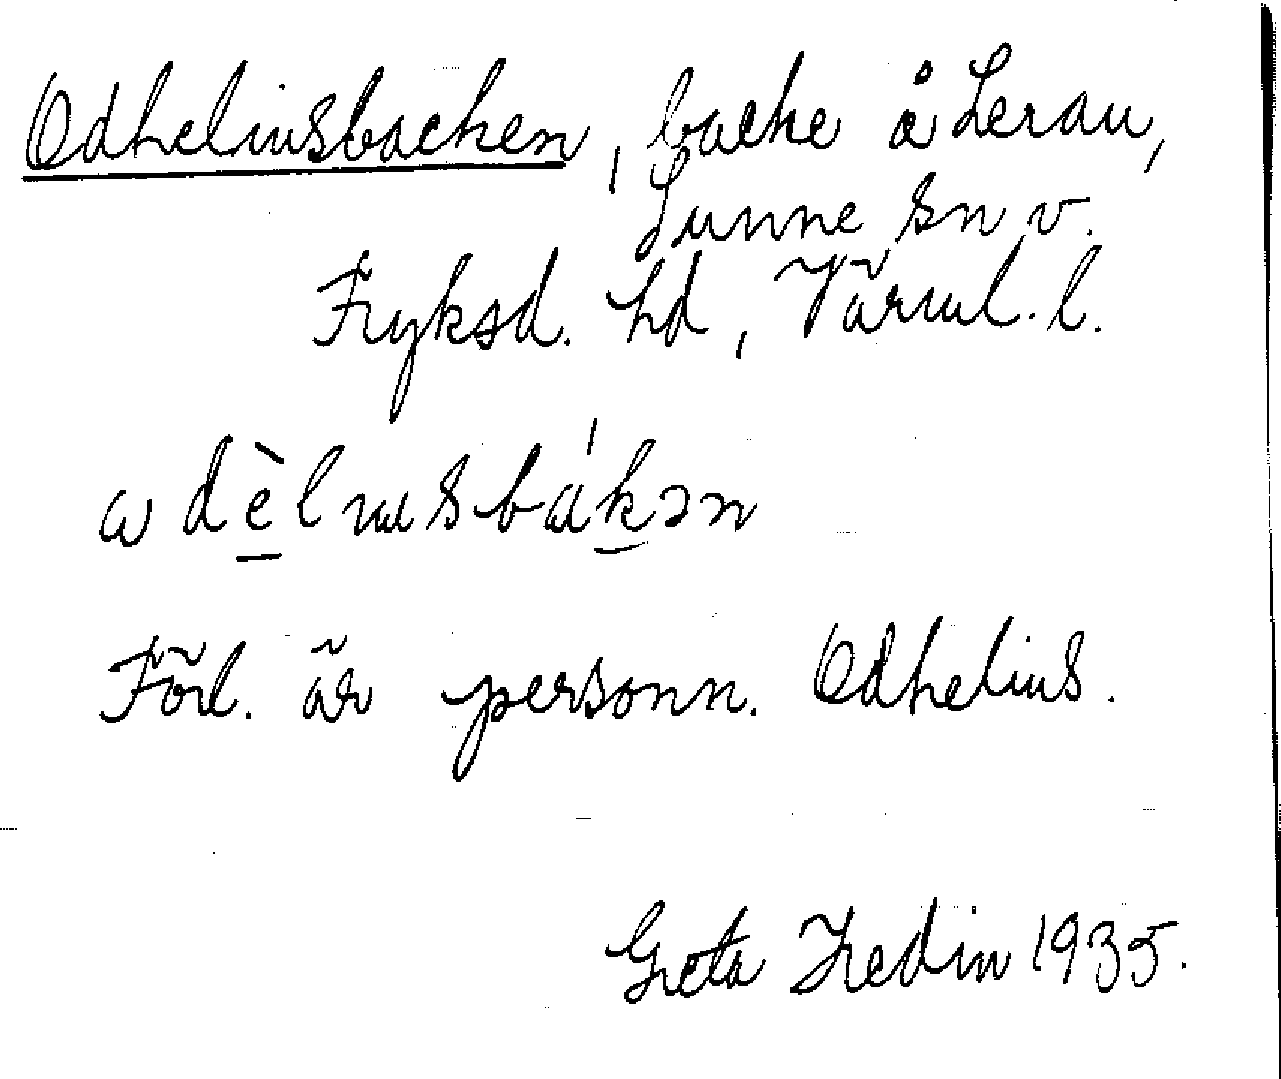 Odheliusbacken, backe å Lerau,
Sunne sn v.
Fryksd. hd, Värml. l.
ω dèlɯsbákən
Förl. är personn. Odhelius.
Greta Hedin 1935.